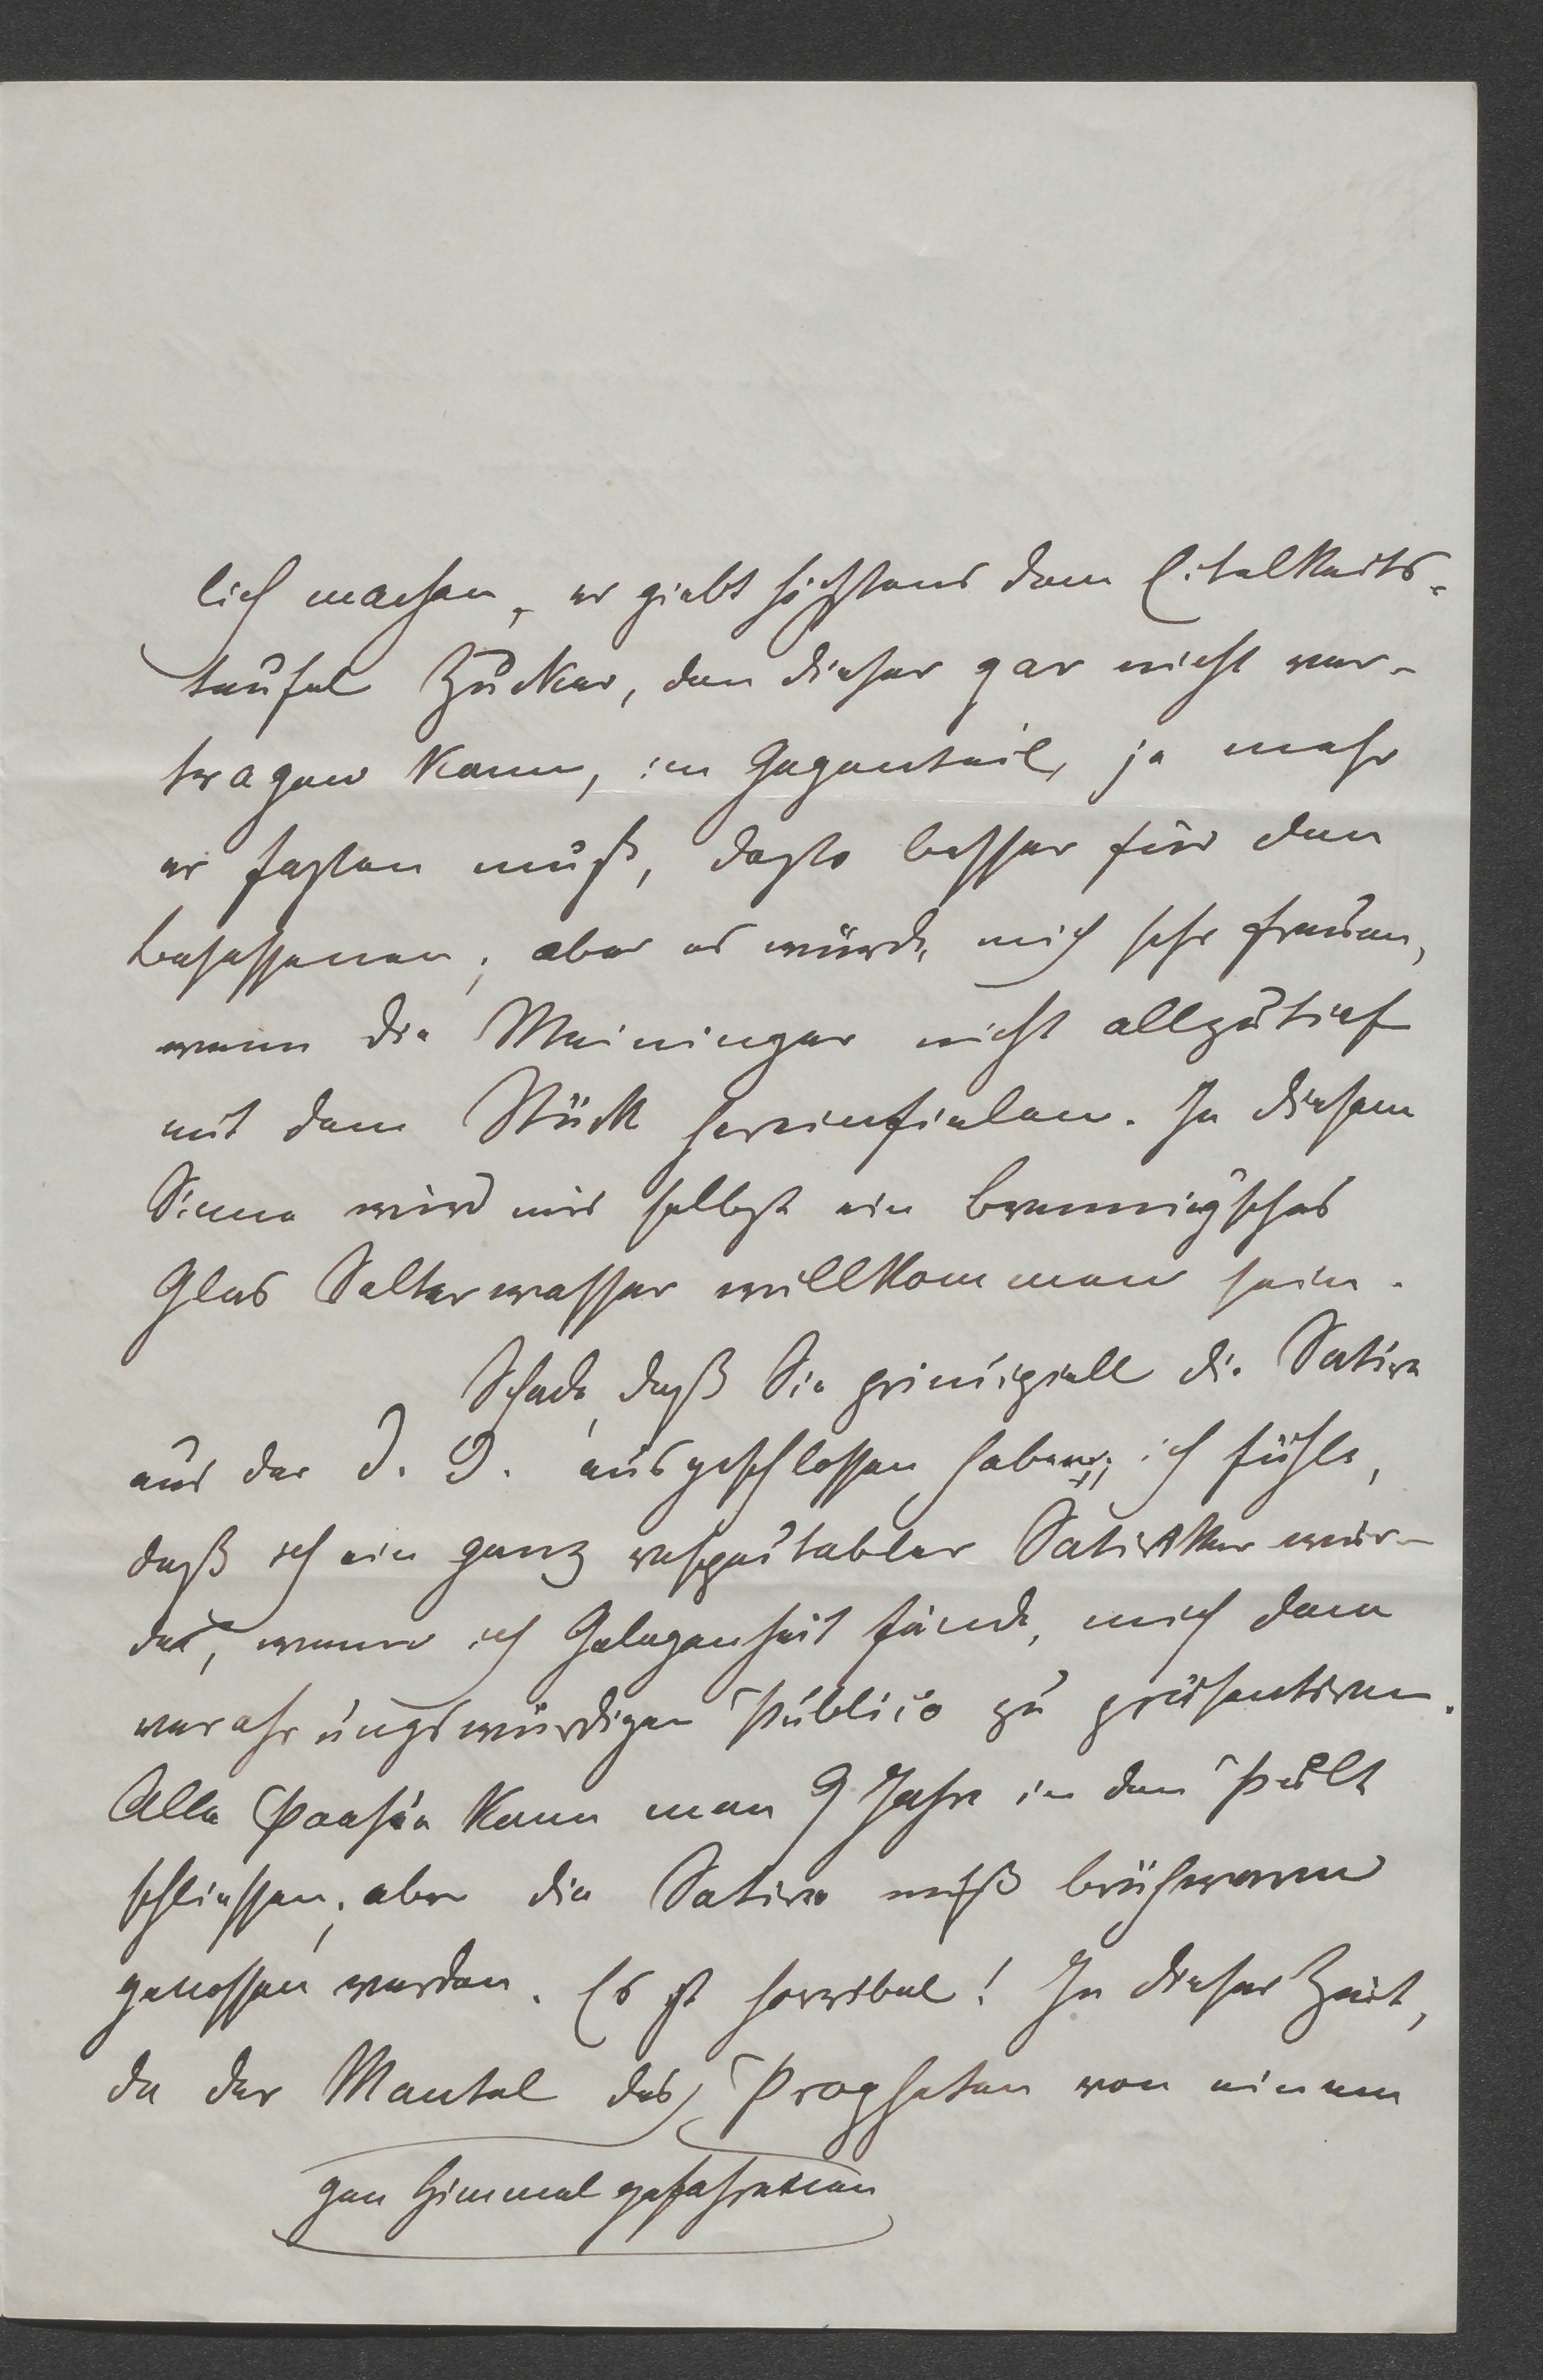 lich machen, er giebt höchstens dem Eitelkeits-
teufel Zucker, den dieser gar nicht ver-
tragen kann, im Gegenteil, je mehr
er fasten muß, desto besser für den
Besessenen; aber es würde mich sehr freuen,
wenn die Meininger nicht allzutief
mit dem Stück hereinfielen. In diesem
Sinne wird mir selbst ein Brennig'sches
Glas Selterwasser willkommen sein.
Schade, daß Sie prinzipiell die Satire
aus der D. D. ausgeschlossen haben; ich fühle,
daß ich ein ganz respectabler Satiriker wür-
de, wenn ich Gelegenheit fände, mich dem
verehrungswürdigen Publico zu präsentiren.
Alle Poesie kann man 9 Jahre in den Pult
schliessen; aber die Satire muß brühwarm
genossen werden. Es ist horribel! In dieser Zeit,
da der Mantel des Propheten von einem
gen Himmel gefahrenen